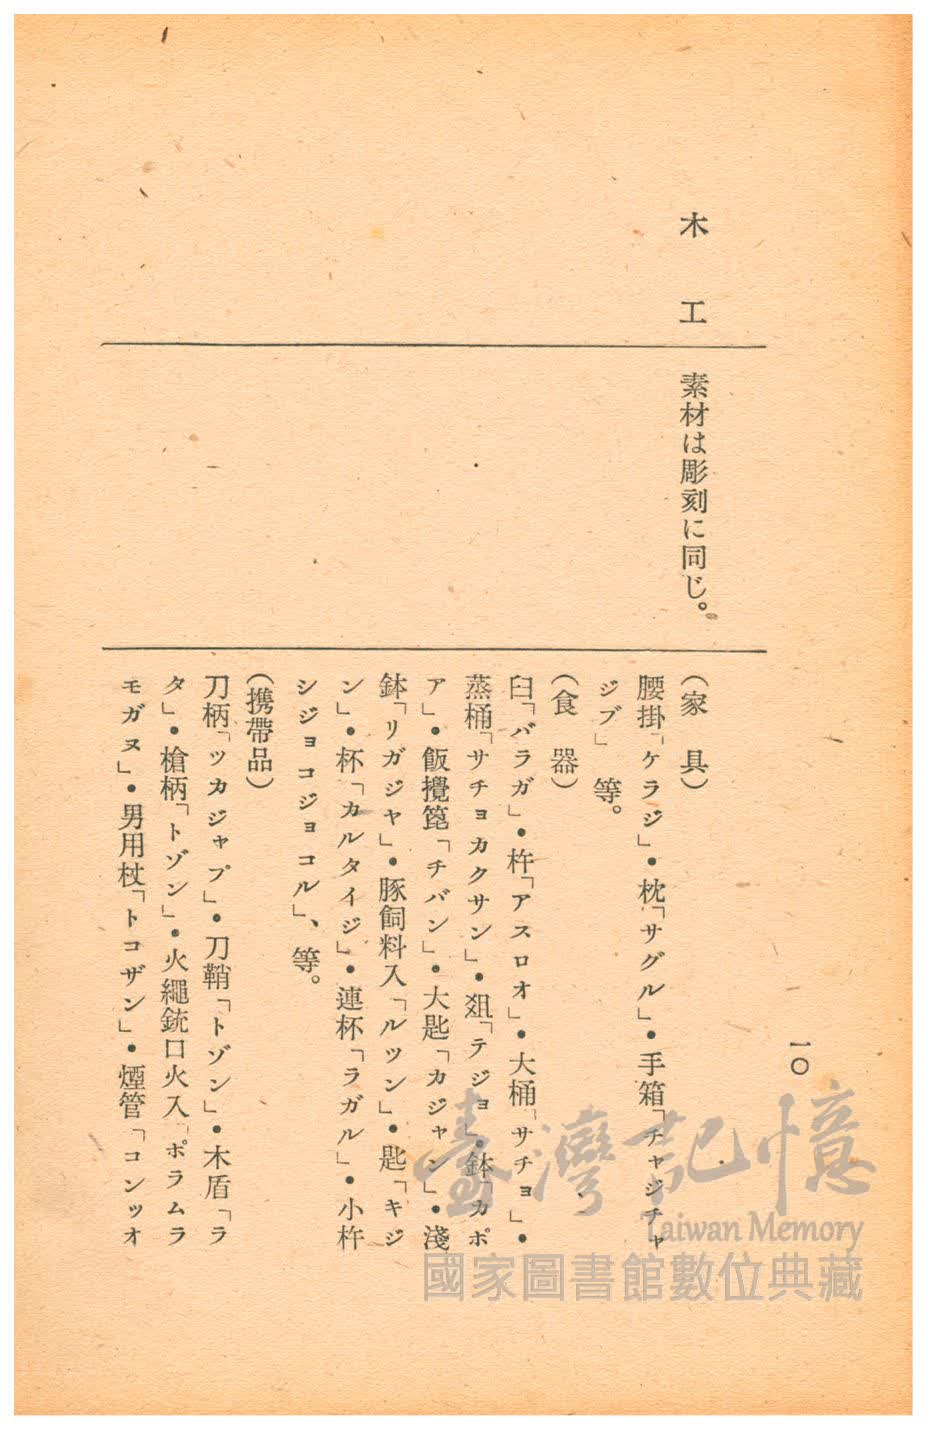 一〇
木工
素材は彫刻に同じ。
（家具）
腰掛「ケラジ」・枕「サグル」・手箱「チャジチャ
ジブ」等。
（食器）
臼「バラガ」・杵「アスロオ」・大桶「サチョ」・
蒸桶「サチョカクサン」・爼「テジョ」・鉢「カポ
ア」・飯攪箆「チバン」・大匙「カジャン」・淺
鉢「リガジヤ」・豚飼料入「ルツン」・匙「キジ
ン」・杯「カルタイジ」・連杯「ラガル」・小杵
シジョコジョコル」、等。
（携帶品）
刀柄「ツカジャプ」・刀鞘「トゾン」・木盾「ラ
タ」・槍柄「トゾン」・火繩銃口火入「ポラムラ
モガヌ」・男用杖「トコザン」・煙管「コンツオ
臺灣記憶
Taiwan Memory
國家圖書館數位典藏